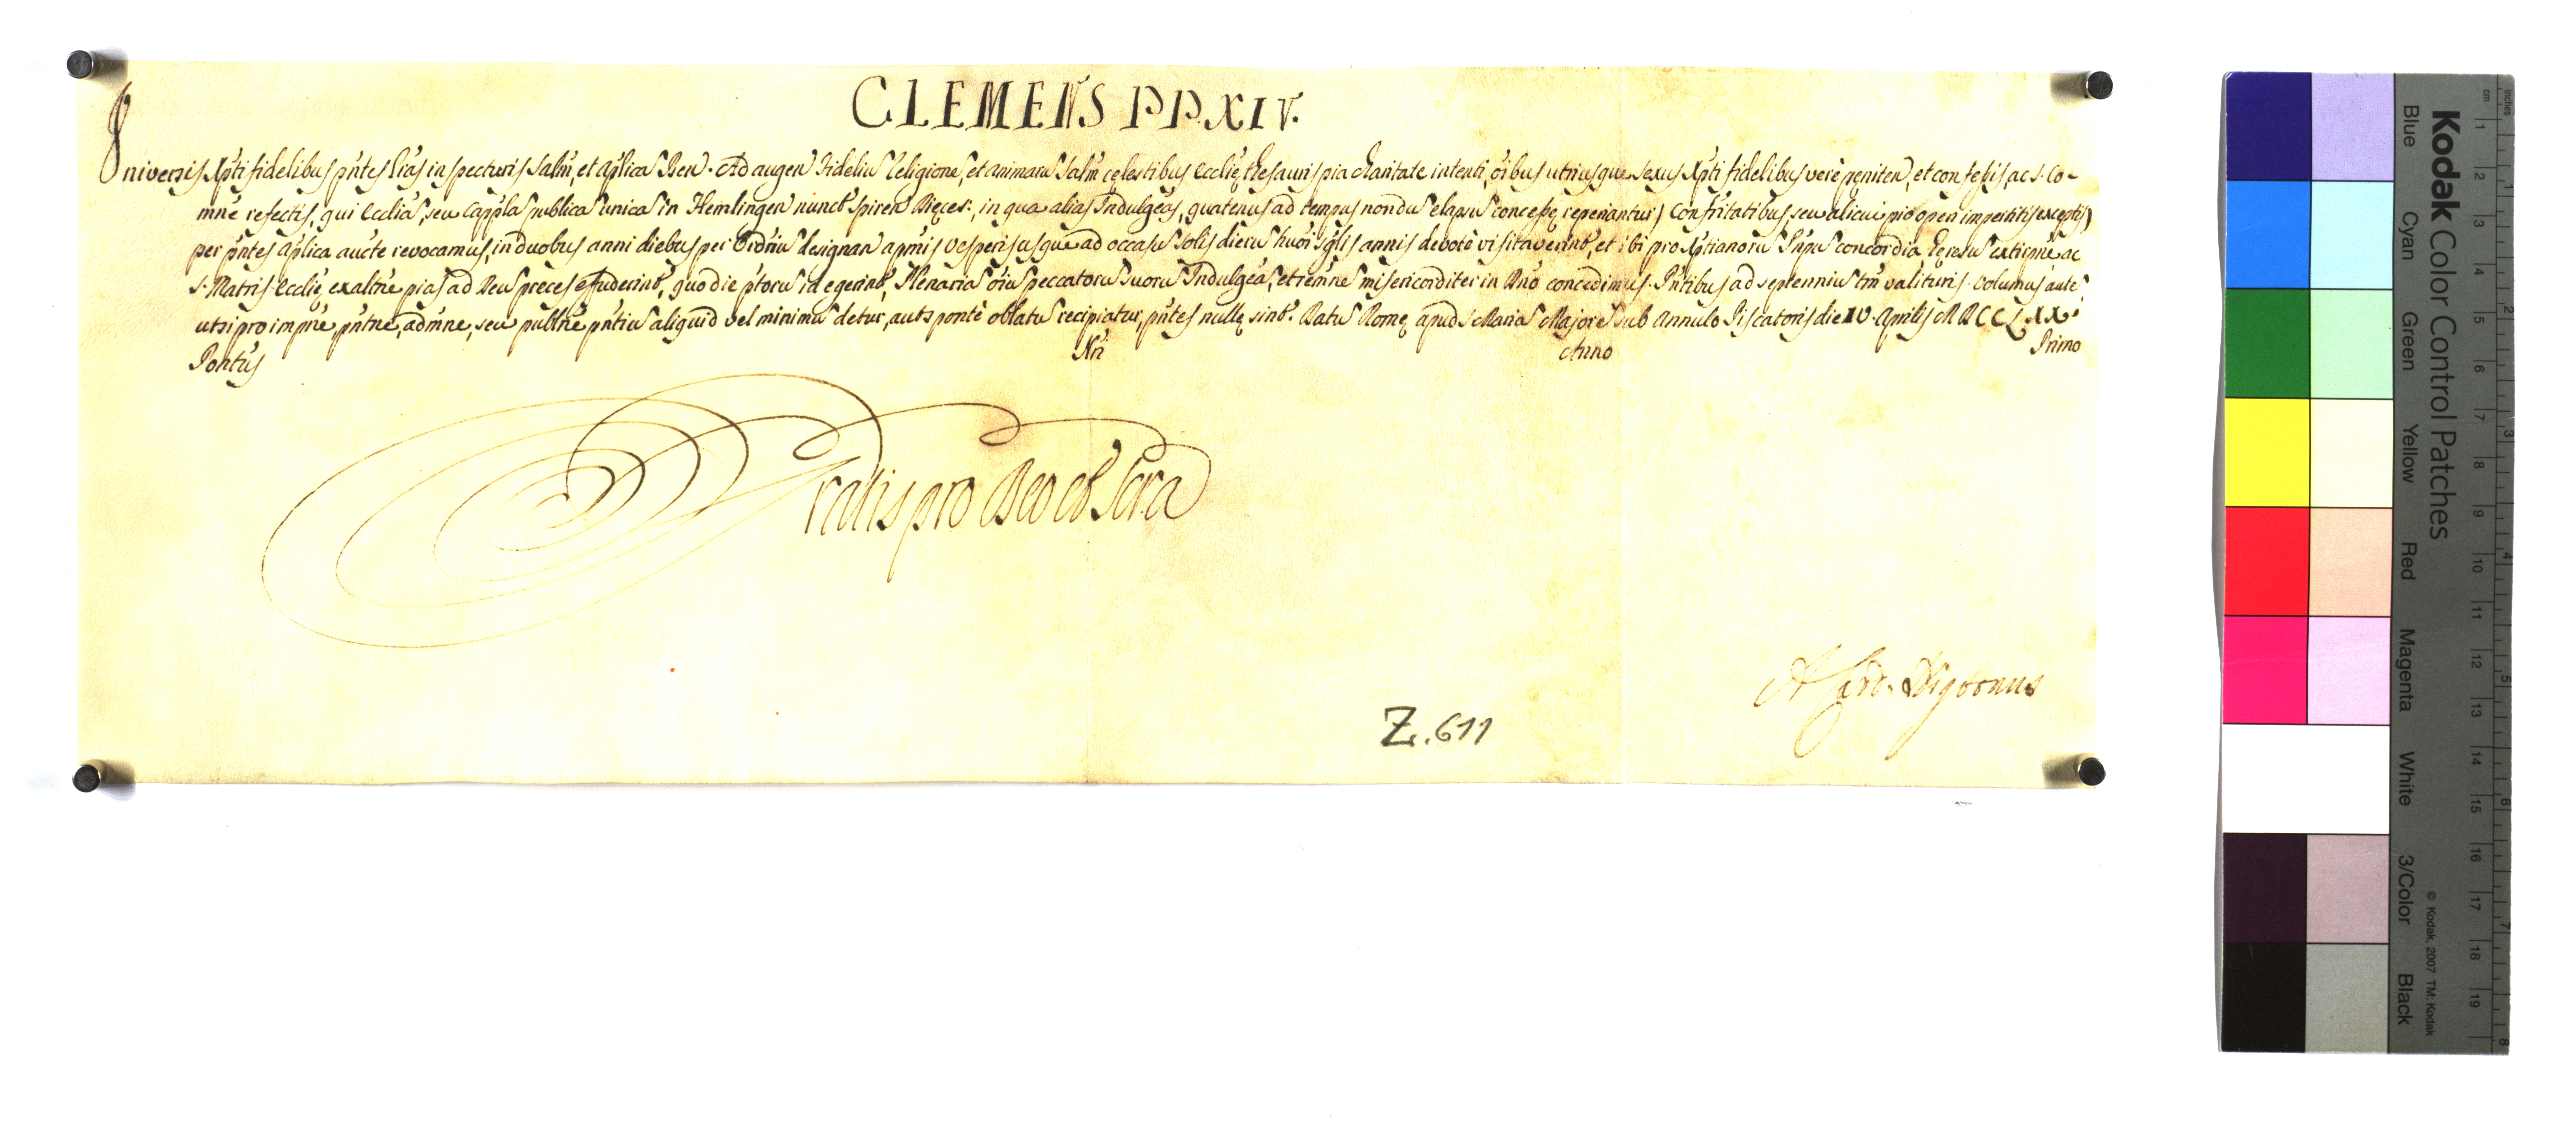 CLEMENS PP. XIV.
Universis Xpti fidelibus pntes Lras inspecturis Salm, et aplica Ben. Ad augen Fideliu Religione, et animaru Salm celestibus Ecclię thesauris pia charitate intenti, oibus utriusque sexus Xpti fidelibus verè peniten, et confessis, ac S. Co-
mne refectis, qui Eccliã, seu Cappla publica unica in Hemlingen nunct Spiren Dięces:, in qua alias Indulgeas, quatenus ad tempus nondu elapsu concessę reperiantur) Confritatibus, seu alicui pio operi impertitis exceptis)
per pntes aplica aucte revocamus, in duobus anni diebus per Ordriu designan a pmis vesperis usque ad occasu Solis dieru huoi sglis annis devotè visitaverint, et ibi pro Xptianoru Pnpu concordia hęresu extirpne, ac
S. Matris Ecclię exaltne pias ad Deu preces effuderint, quo die ptoru id egerint, Plenaria oiu peccatoru suoru Indulgea, et remne misericorditer in Dno concedimus. Pntibus ad septenniu tm valituris. Volumus aute,
ut si pro impne, pntne, admne, seu publne pntiu aliquid vel minimu detur, aut spontè oblatu recipiatur, pntes nullę sint. Datu Romę apud S. Maria Majore sub Annulo Piscatoris die XV. Aprilis MDCCLXX.
Pontus Nri Anno Primo
Gratis pro Deo et Scra
A Card. Nigronus
Z. 611
Kodak Color Control Patches
Blue Cyan Green Yellow Red Magenta White 3/Color Black
© Kodak, 2007 TM: Kodak
inches 1 2 3 4 5 6 7 8
cm 1 2 3 4 5 6 7 8 9 10 11 12 13 14 15 16 17 18 19